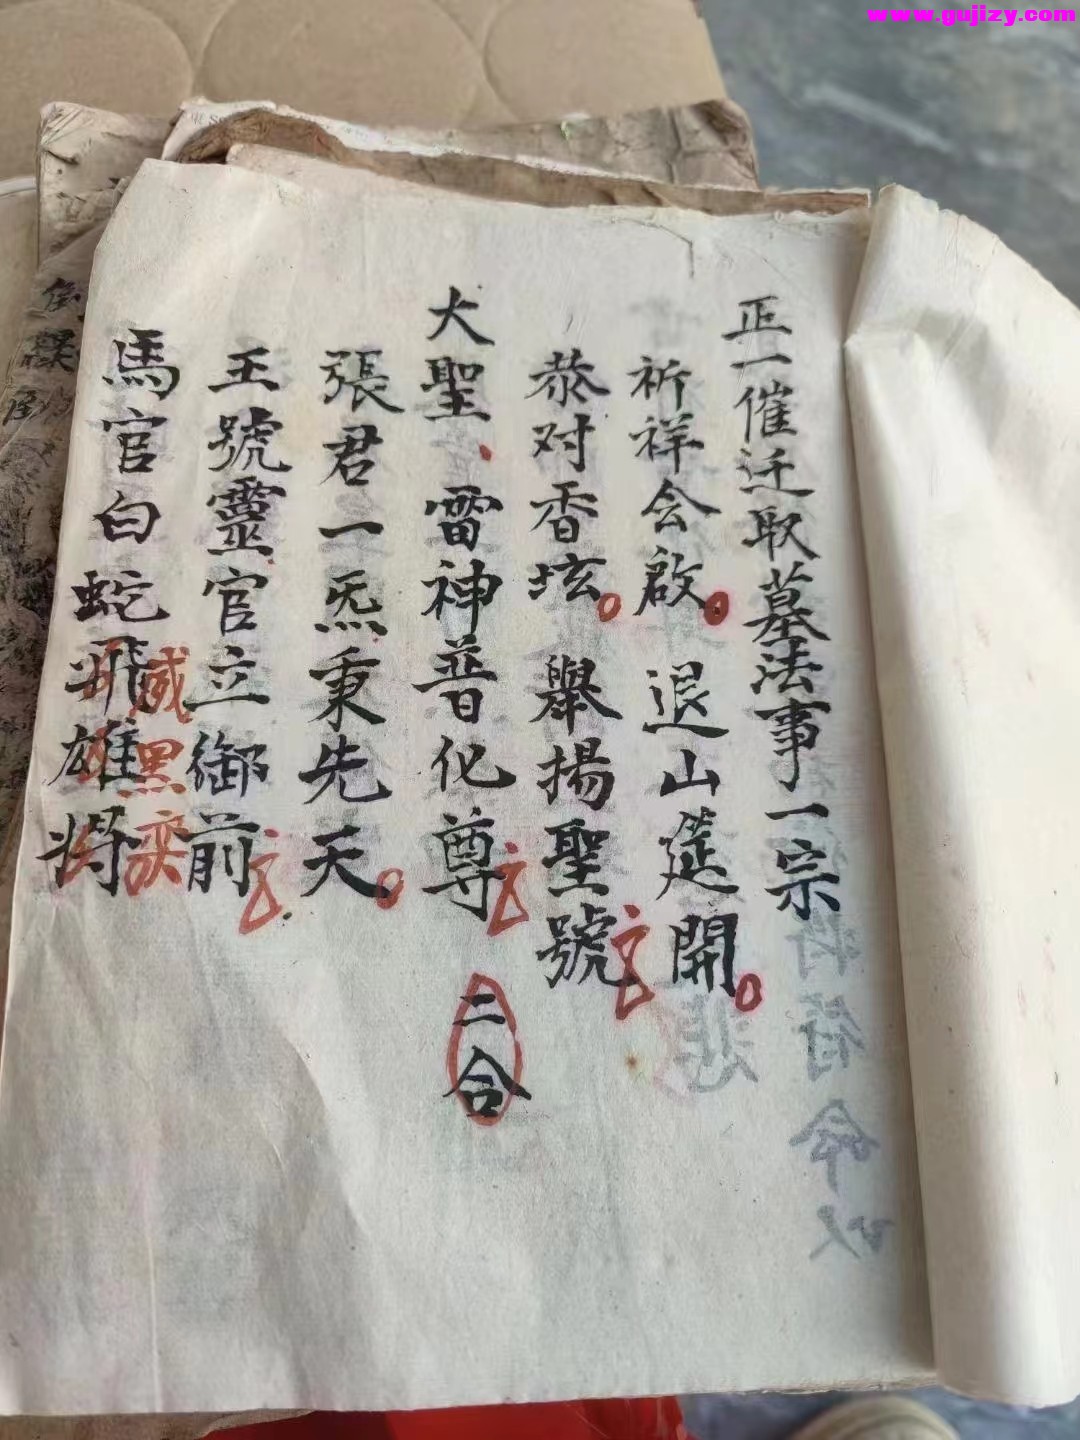 www.gujizy.com
正一催迁取墓法事一宗
祈祥会啟。退山筵開。
恭对香坛。舉揚聖號
大聖、雷神普化尊 二合
張君一炁秉先天。
王號靈官立御前
馬官白蛇飛雄将
威黑奕